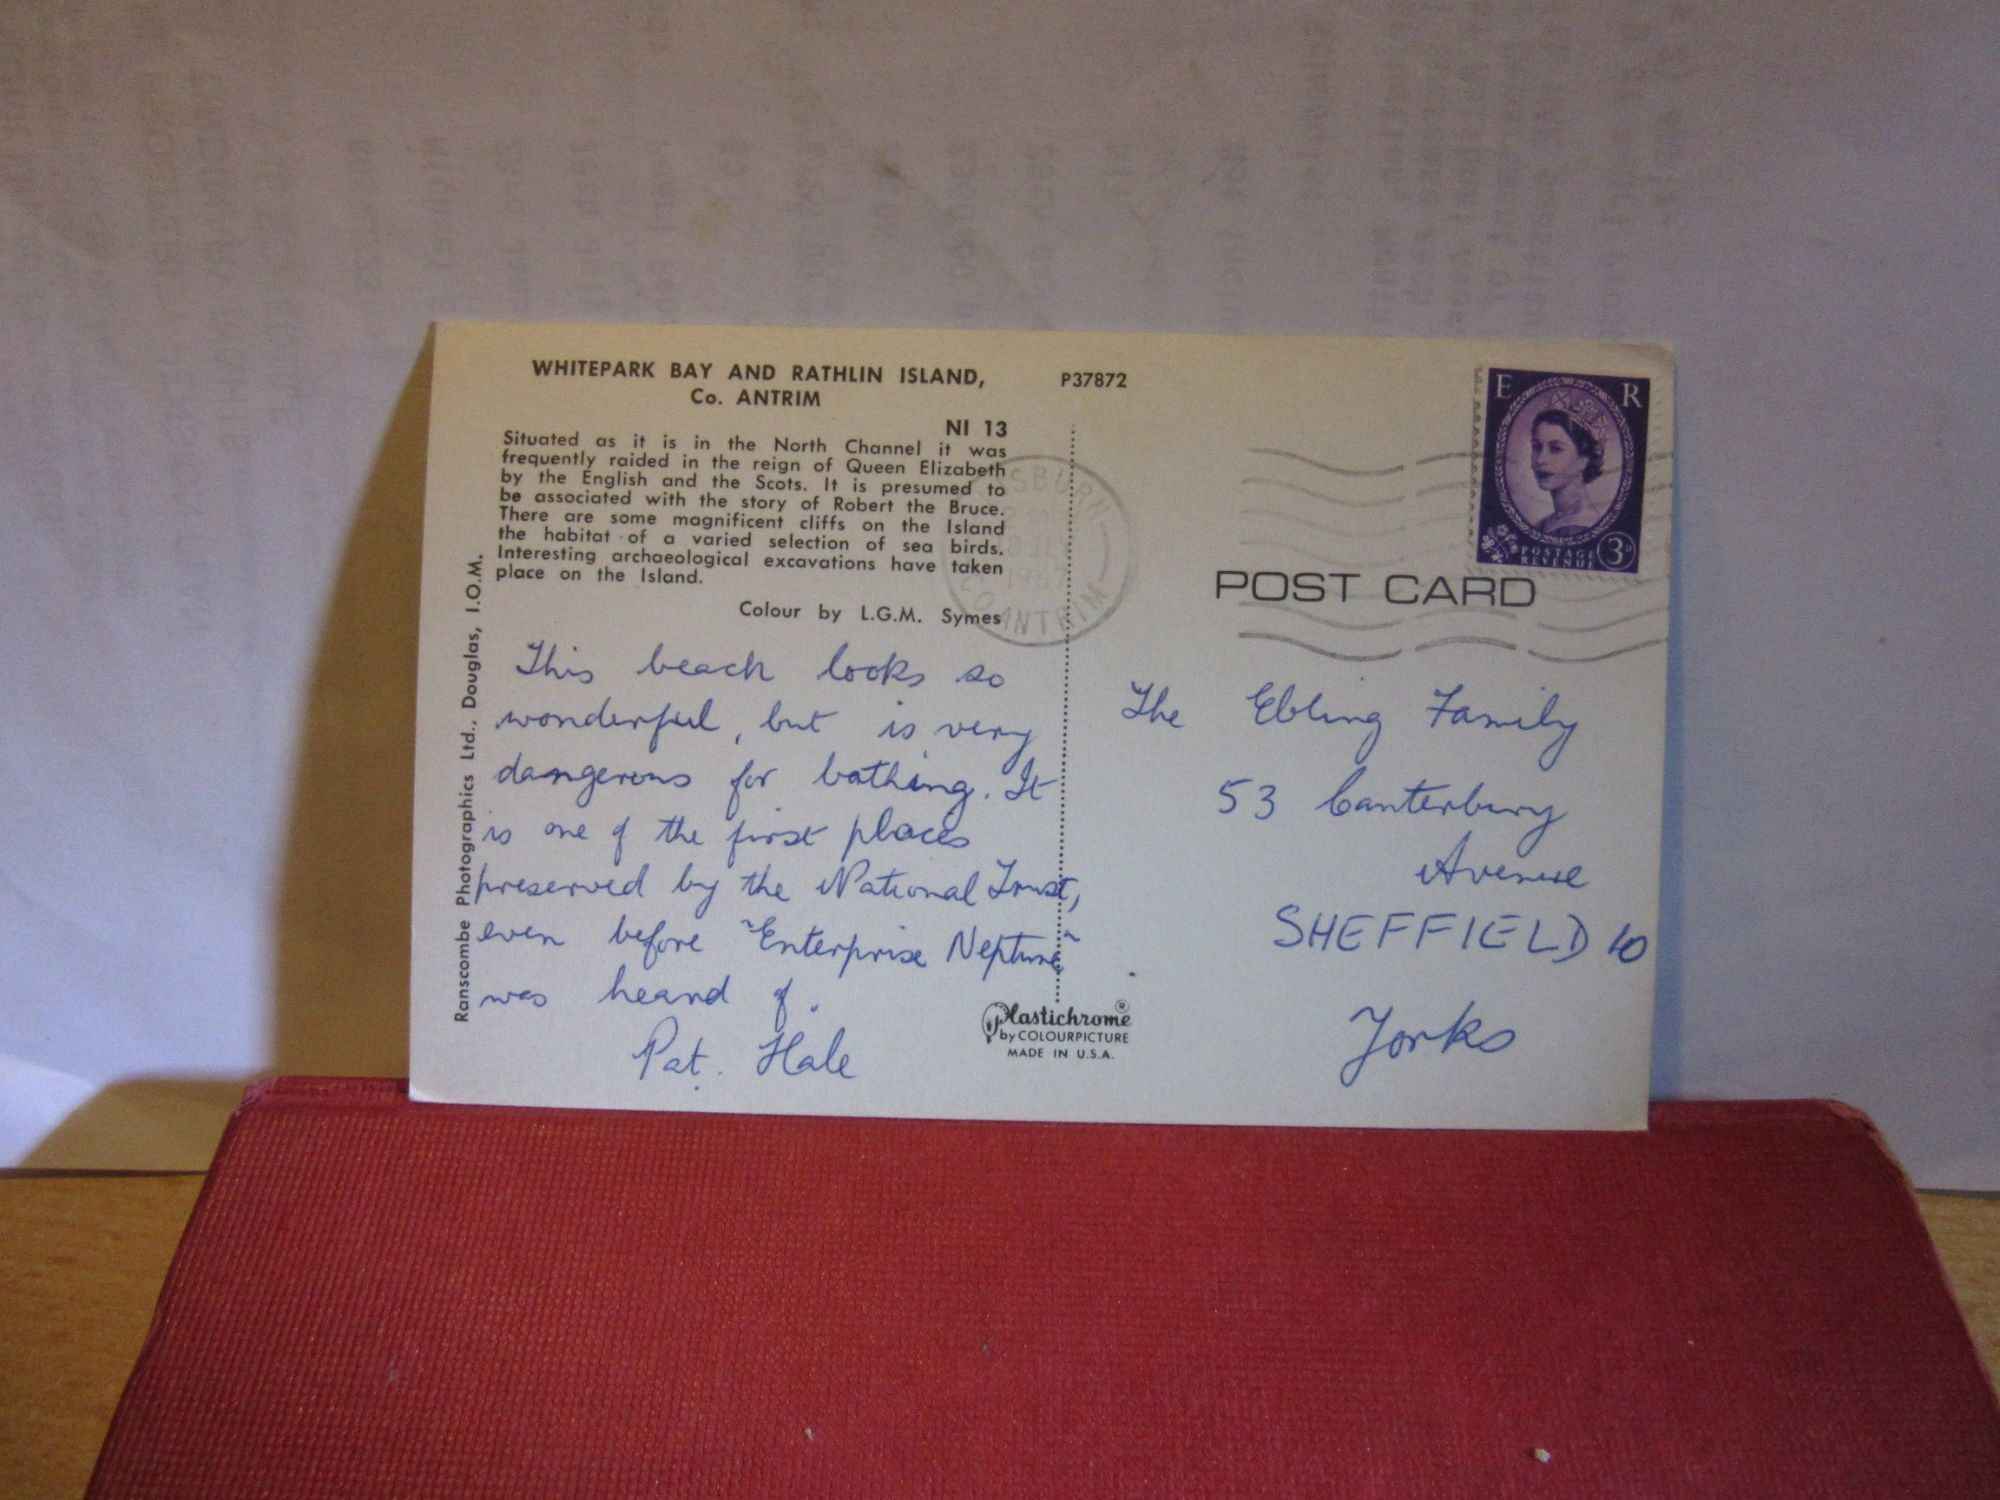 WHITEPARK BAY AND RATHLIN ISLAND,
Co. ANTRIM
P37872
NI 13
Situated as it is in the North Channel it was
frequently raided in the reign of Queen Elizabeth
by the English and the Scots. It is presumed to
be associated with the story of Robert the Bruce.
There are some magnificent cliffs on the Island
the habitat of a varied selection of sea birds.
Interesting archaeological excavations have taken
place on the Island.
Colour by L.G.M. Symes
Ranscombe Photographics Ltd., Douglas, I.O.M.
This beach looks so
wonderful, but is very
dangerous for bathing. It
is one of the first places
preserved by the National Trust,
even before "Enterprise Neptune"
was heard of.
Pat. Hale
Plastichrome ®
by COLOURPICTURE
MADE IN U.S.A.
1967
CO ANTRIM
E R
POSTAGE
REVENUE
3D
POST CARD
The Ebling Family
53 Canterbury
Avenue
SHEFFIELD 10
Yorks